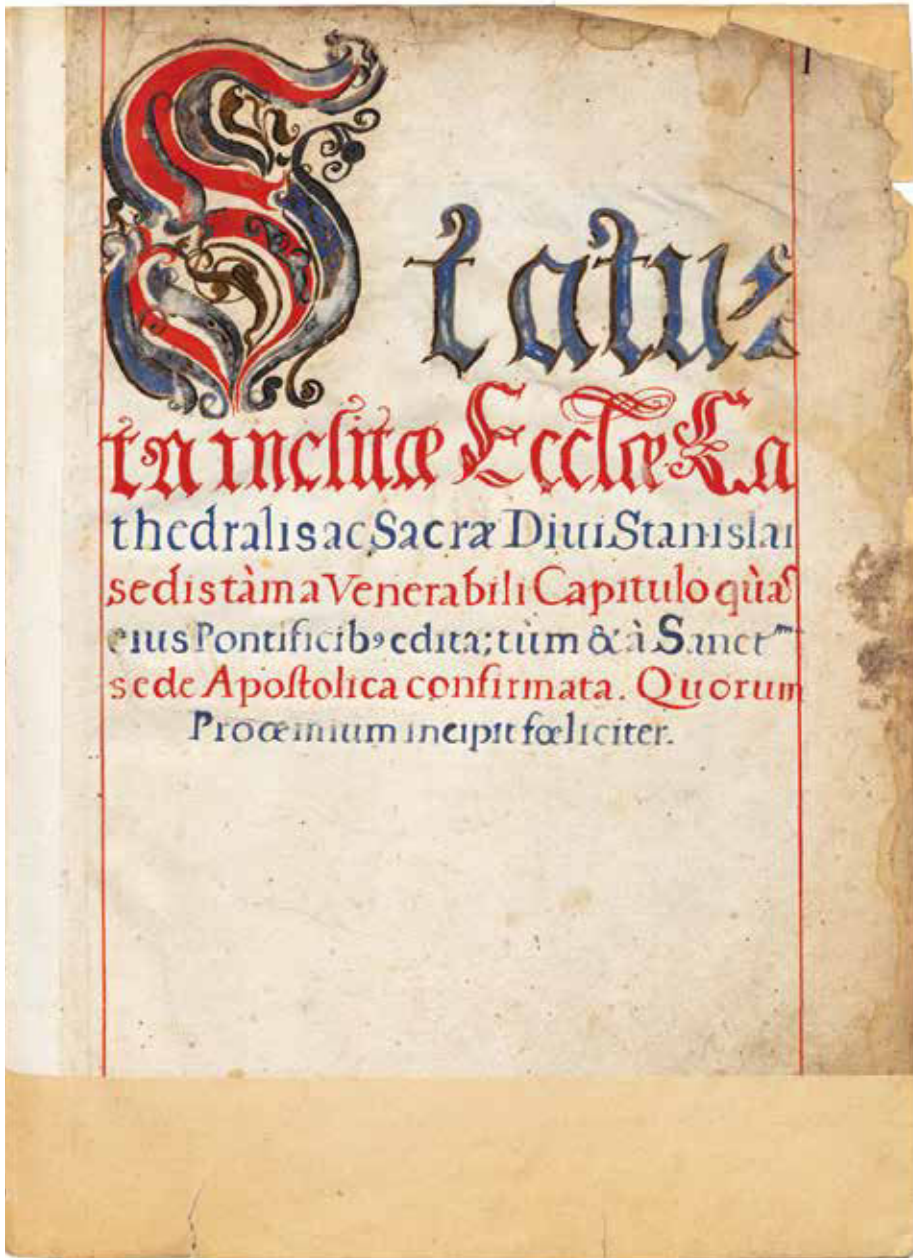 Statu⸗
ta inclitæ Eccl̃iæ Ca
thedralis ac Sacræ Diui Stanislai
sedis tàm a Venerabili Capitulo quàs
eius Pontificibꝰ edita; tùm & à Sanctᵐᵃ
sede Apoſtolica confirmata. Quorum
Proœmium incipit fœliciter.